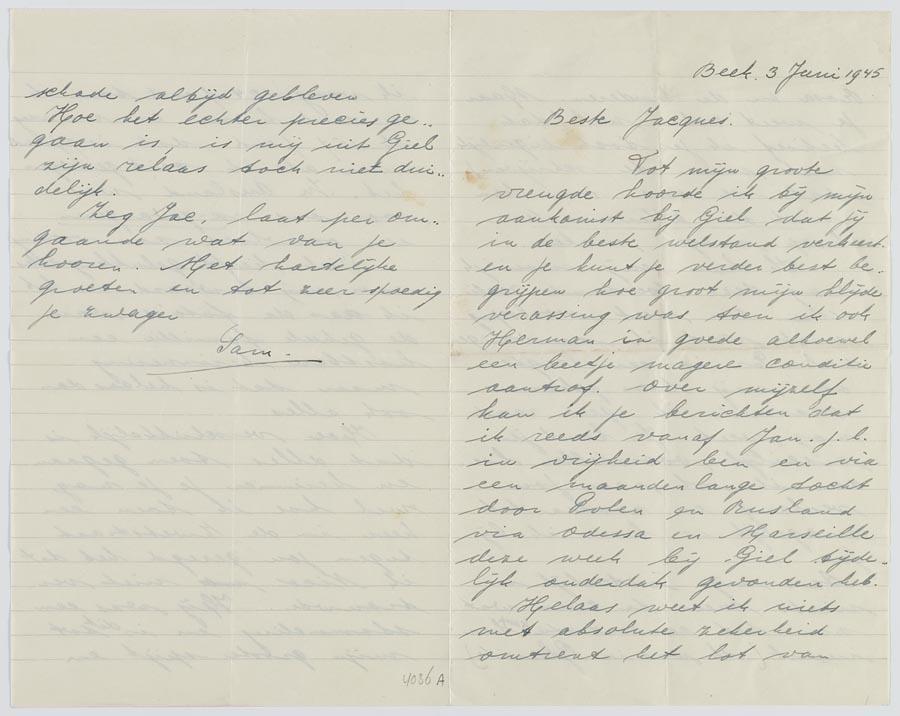 Beek. 3 Juni 1945
Beste Jacques.
Tot mijn groote
vreugde hoorde ik bij mijn
aankomst bij Giel dat jij
in de beste welstand verkeert.
en je kunt je verder best be-
grijpen hoe groot mijn blijde
verassing was, toen ik ook
Herman in goede alhoewel
een beetje magere conditie
aantrof. Over mijzelf
kan ik je berichten dat
ik reeds vanaf Jan. j.l.
in vrijheid ben en via
een maandenlange tocht
door Polen en Rusland
via Odessa en Marseille
deze week bij Giel tijde-
lijk onderdak gevonden heb.
Helaas weet ik niets
met absolute zekerheid
omtrent het lot van
schade altijd gebleven
Hoe het echter precies ge-
gaan is, is mij uit Giel
zijn relaas toch niet dui-
delijk.
Zeg Jac, laat per om-
gaande wat van je
hooren. Met hartelijke
groeten en tot zeer spoedig
je zwager
Sam.
4036 A